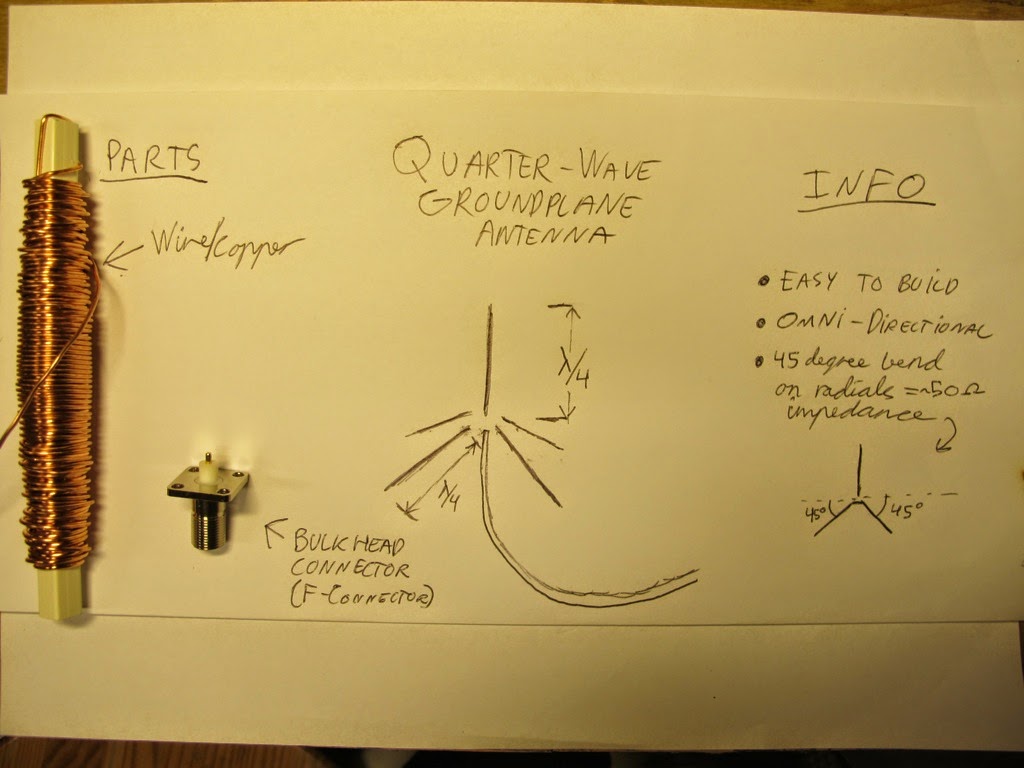 PARTS
Wire/copper
QUARTER-WAVE
GROUNDPLANE
ANTENNA
λ/4
λ/4
BULKHEAD
CONNECTOR
(F-CONNECTOR)
INFO
• EASY TO BUILD
• OMNI-DIRECTIONAL
• 45 degree bend
on radials =~50Ω
impedance
45° 45°